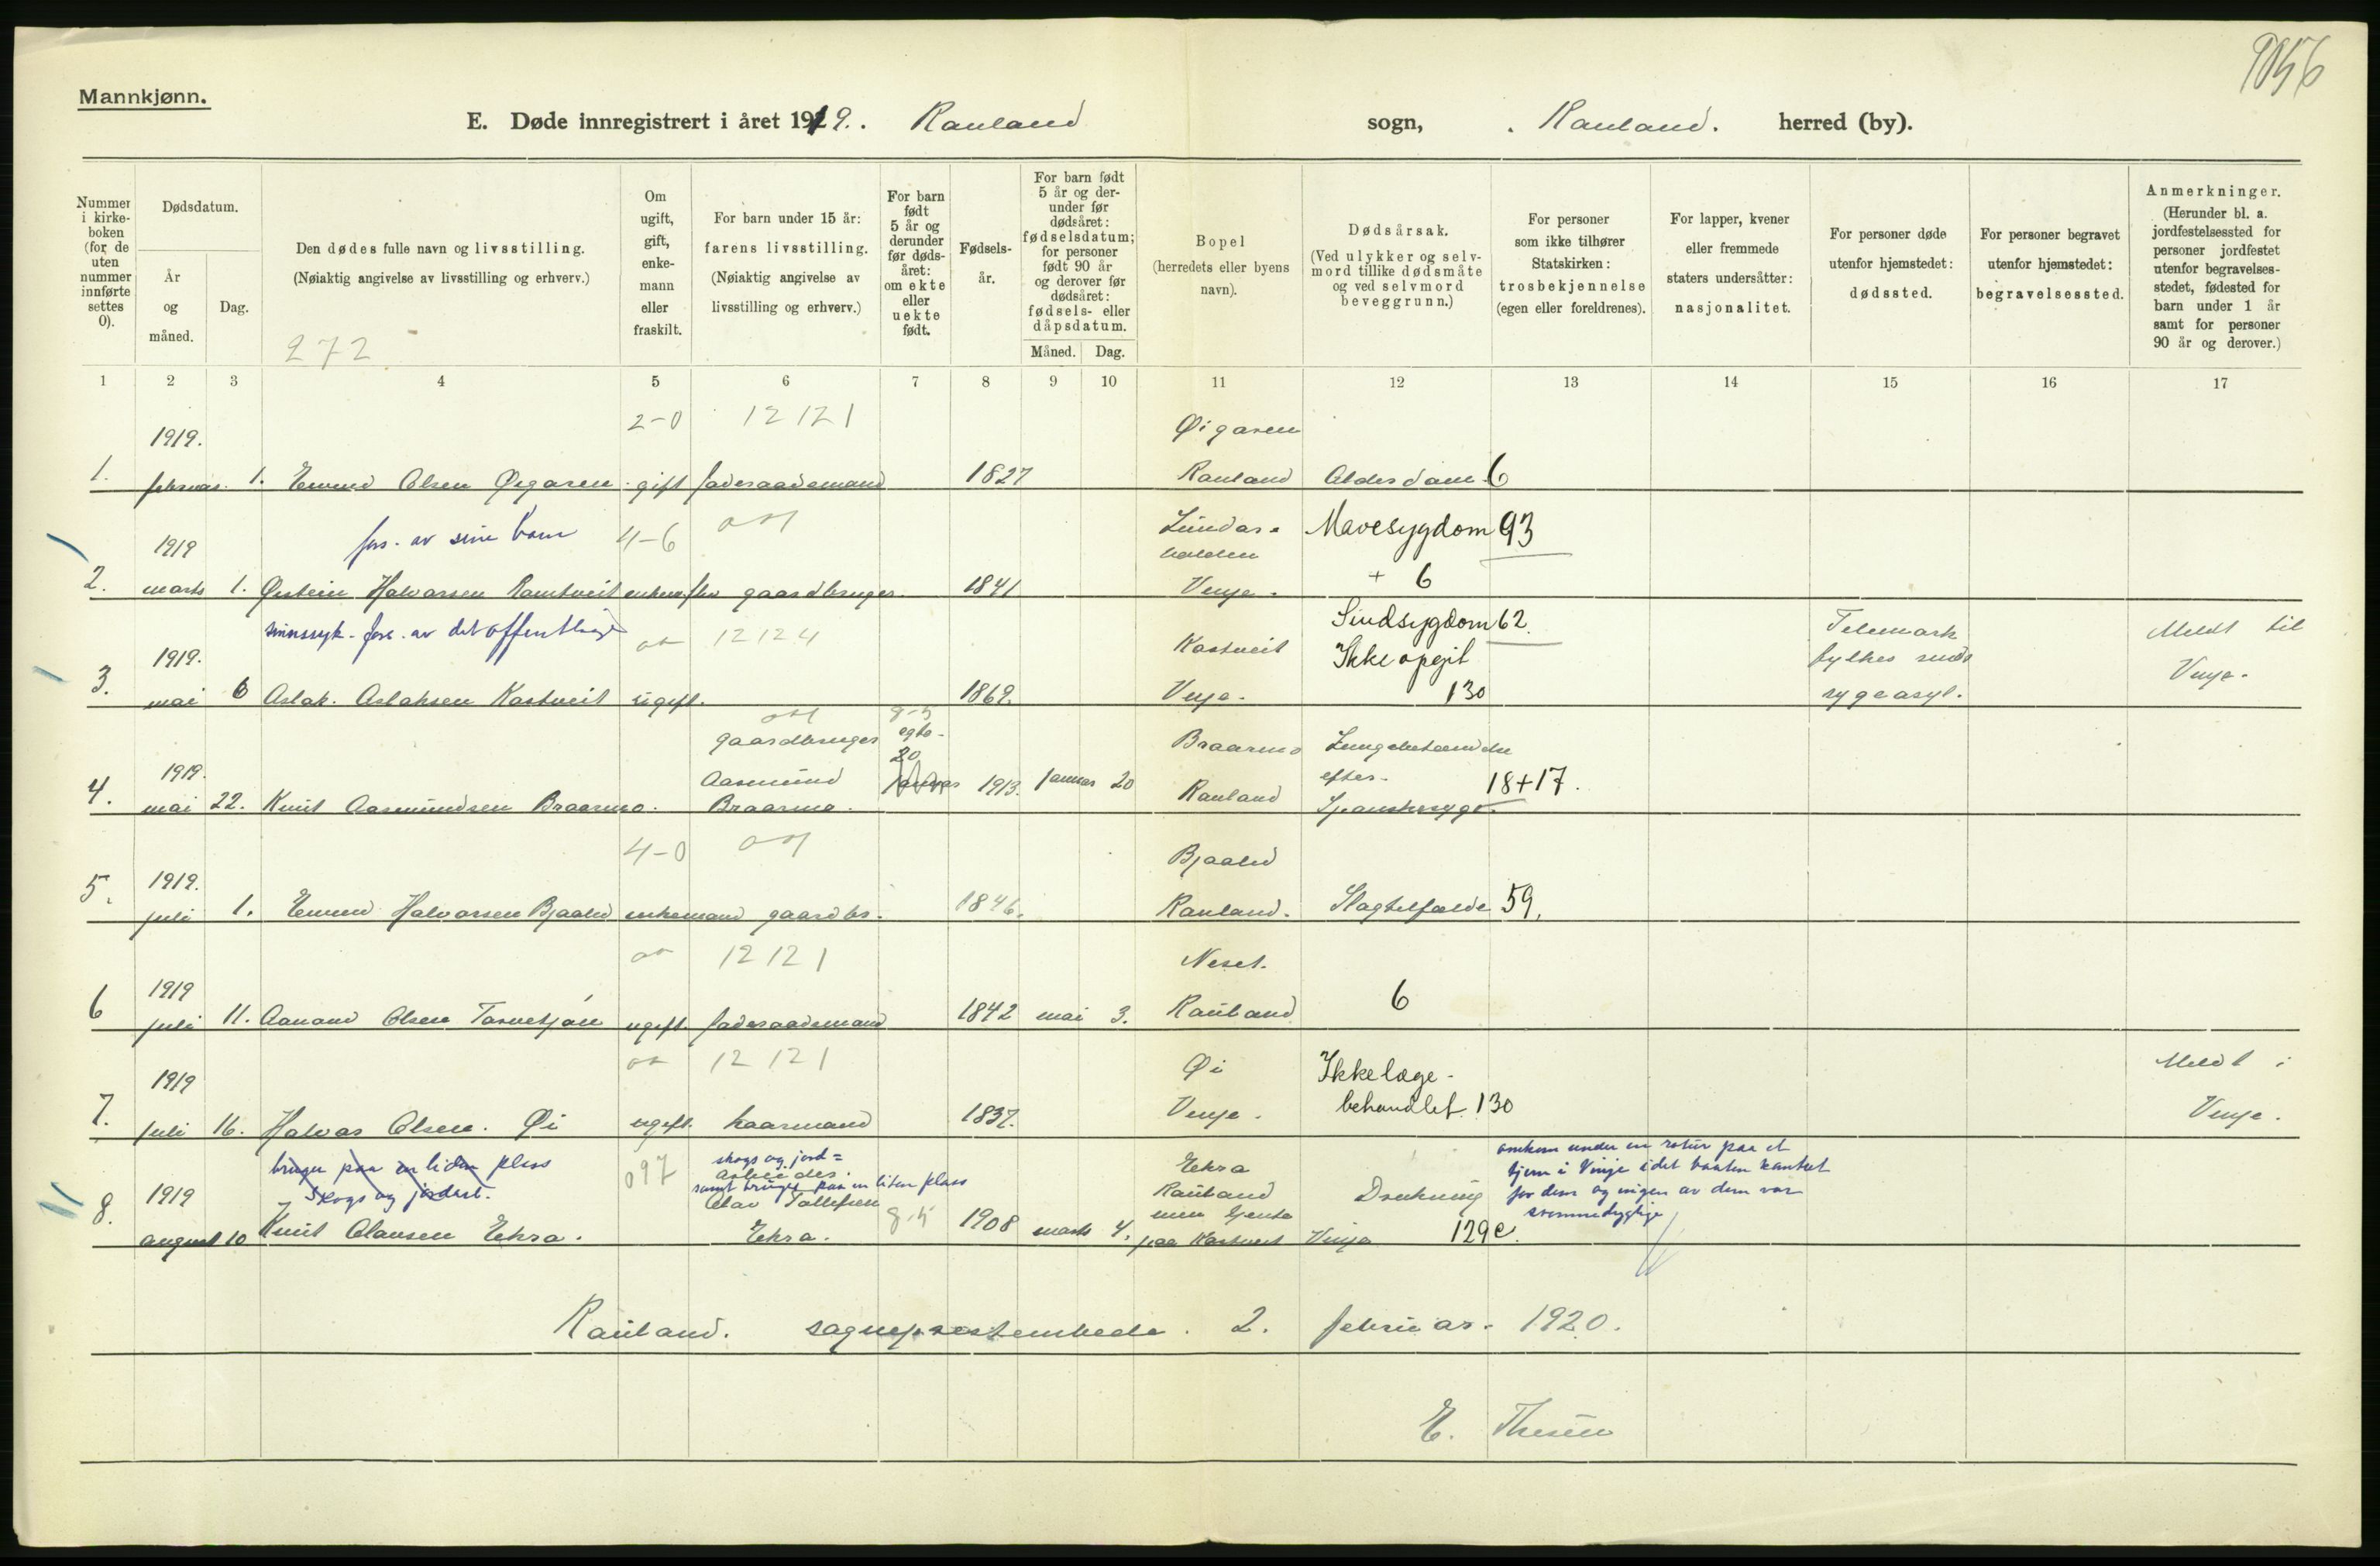 9056
Mannkjønn.
E. Døde innregistrert i året 1919. Rauland sogn, Rauland. herred (by).
Nummer i kirke-boken (for de uten nummer innførte settes 0).
Dødsdatum.
År og måned.
Dag.
Den dødes fulle navn og livsstilling.
(Nøiaktig angivelse av livsstilling og erhverv.)
272
Om ugift, gift, enke-mann eller fraskilt.
For barn under 15 år: farens livsstilling.
(Nøiaktig angivelse av livsstilling og erhverv.)
For barn født 5 år og derunder før døds-året: om ekte eller uekte født.
Fødsels-år.
For barn født 5 år og der-under før dødsåret: fødselsdatum; for personer født 90 år og derover før dødsåret: fødsels- eller dåpsdatum.
Måned. Dag.
Bopel (herredets eller byens navn).
Dødsårsak.
(Ved ulykker og selv-mord tillike dødsmåte og ved selvmord beveggrunn.)
For personer som ikke tilhører Statskirken: trosbekjennelse (egen eller foreldrenes).
For lapper, kvener eller fremmede staters undersåtter: nasjonalitet.
For personer døde utenfor hjemstedet: dødssted.
For personer begravet utenfor hjemstedet: begravelsessted.
Anmerkninger.
(Herunder bl. a. jordfestelsessted for personer jordfestet utenfor begravelses-stedet, fødested for barn under 1 år samt for personer 90 år og derover.)
1 2 3 4 5 6 7 8 9 10 11 12 13 14 15 16 17
2-0 12121
1919. Øigaren
1. februar. 1. Eivind Olsen Øigaren gift føderaadsmand 1827 Rauland Alderdom 6
fors. av sine barn 4-6
1919 Mavesygdom 93
+ 6
2. marts 1. Øistein Halvorsen Ramtveit enkem. fhv gaardbruger. 1841 Vinje.
sinnssyk. fors. av det offentlige 12124
1919. Kostveit Sindsygdom 62. Telemark Meldt til
Ikke opgit fylkes sinds Vinje.
3. mai 6 Aslak. Aslaksen Kostveit ugift. 1869. Vinje. 130 sygeasyl.
g-5
gaardbruger egte-
1919. Aasmund 20 Braarmo Lungebetændelse
efter 18+17.
4. mai 22. Knut Aasmundsen Braarmo. Braarmo. 1913. januar 20 Rauland Spanskesyge.
4-0
1919. Bjaaland
5. juli 1. Eivind Halvorsen Bjaaland enkemand gaardbr. 1846. Rauland. Slagtilfælde 59.
12121
1919 Neset.
6 juli 11. Aanund Olsen Tarvetjøn ugift føderaadsmand 1842 mai 3. Rauland 6
12121
1919 Øi Ikke læge- Meldt i
7. juli 16. Halvor Olsen. Øi ugift. kaarmand 1837. Vinje. behandlet. 130 Vinje.
bruger paa en liden plass
Skogs og jordarb.
097
skogs og jord=
arbeider.
samt bruger paa en liten plass
Olav Tollefsen
1919 Ekra
Rauland
men hjente
omkom under en rotur paa et
tjern i Vinje idet baaten kantret
for dem og ingen av dem var
svømmedygtige
8. august 10 Knut Olavsen Ekra. Ekra. g-5 1908 marts 4. paa Kostveit Vinje Drukning 129e.
Rauland. sogneprestembede. 2. februar. 1920.
E. Thesen